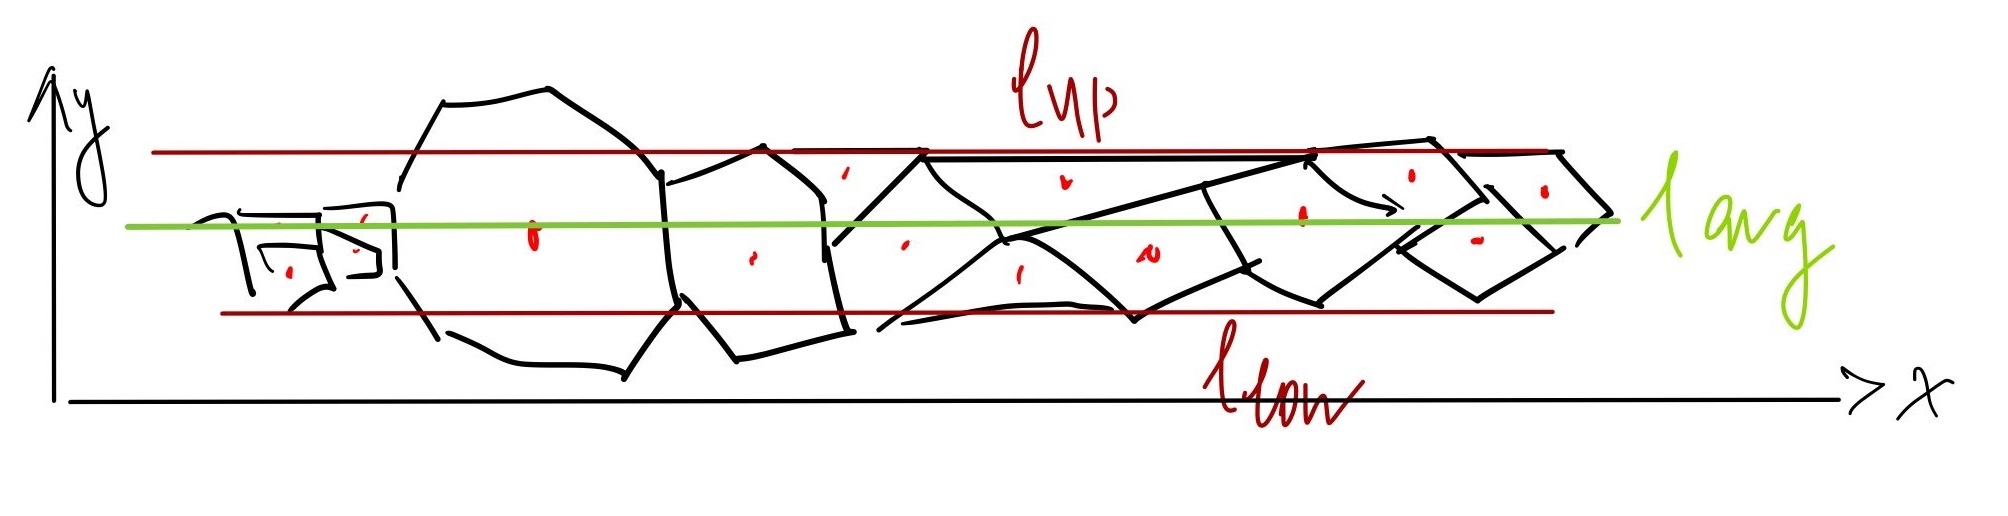 y
l up
l avg
l low
x